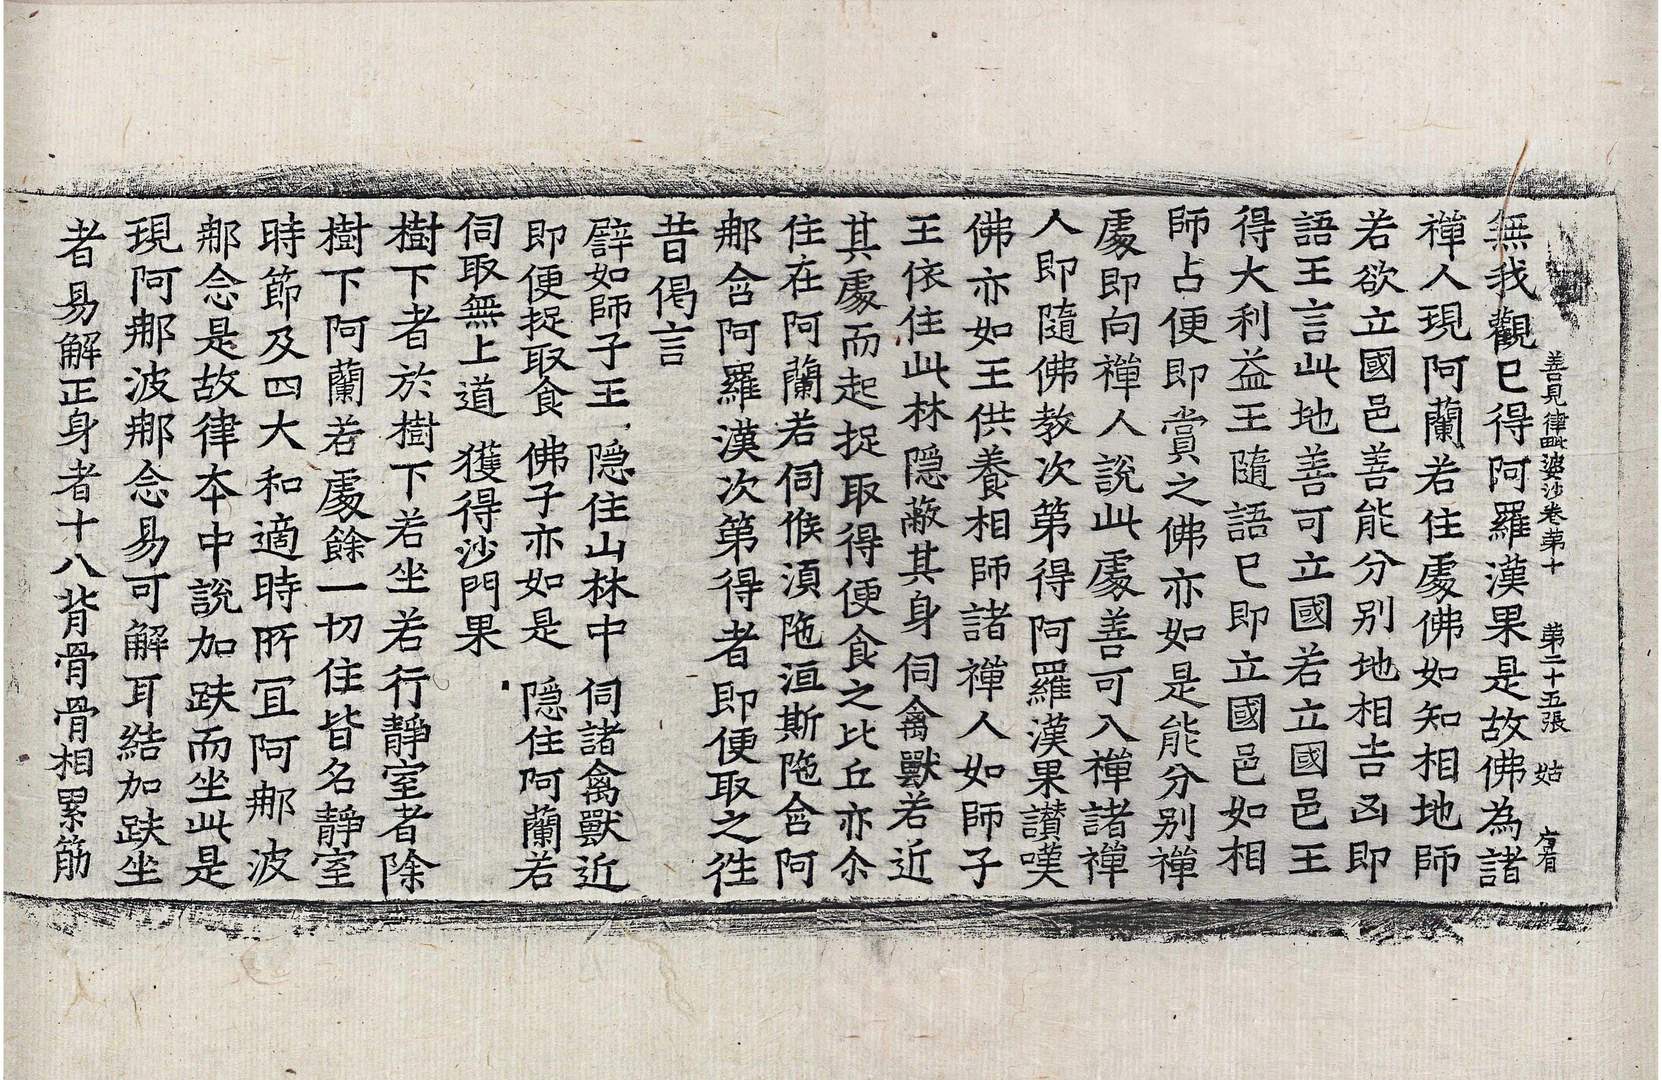 善見律毗婆沙卷第十　第二十五張　姑
無我觀已得阿羅漢果是故佛為諸
禪人現阿蘭若住處佛如知相地師
若欲立國邑善能分別地相吉凶即
語王言此地善可立國若立國邑王
得大利益王隨語已即立國邑如相
師占便即賞之佛亦如是能分別禪
處即向禪人說此處善可入禪諸禪
人即隨佛教次第得阿羅漢果讃嘆
佛亦如王供養相師諸禪人如師子
王依住此林隱蔽其身伺禽獸若近
其處而起捉取得便食之比丘亦尒
住在阿蘭若伺候湏陁洹斯陁含阿
那含阿羅漢次第得者即便取之徃
昔偈言
譬如師子王　隱住山林中　伺諸禽獸近
即便捉取食　佛子亦如是　隱住阿蘭若
伺取無上道　獲得沙門果
樹下者於樹下若坐若行靜室者除
樹下阿蘭若處餘一切住皆名靜室
時節及四大和適時所冝阿那波
那念是故律夲中說加趺而坐此是
現阿那波那念易可解耳結加趺坐
者易解正身者十八背骨骨相累筋